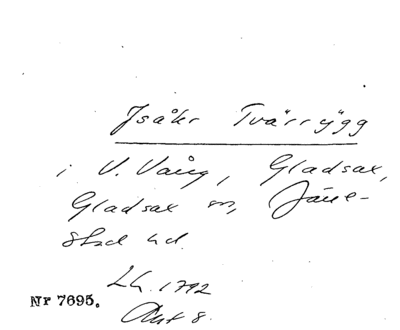 Isåkr Tvärrygg
i V. Vång, Gladsax,
Gladsax sn, Järre-
stad hd.
Lh. 1792
Akt 8.
Nr 7695.